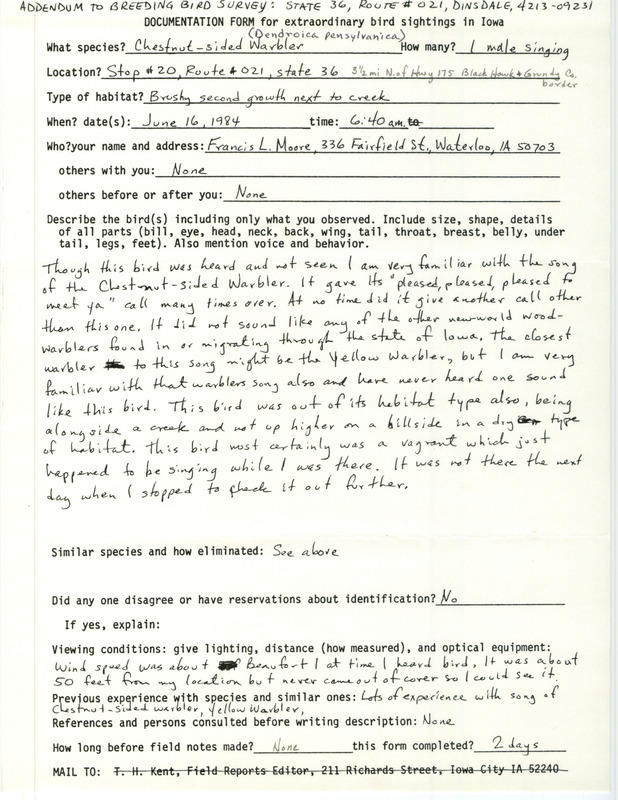 ADDENDUM TO BREEDING BIRD SURVEY: STATE 36, ROUTE # 021, DINSDALE, 4213-09231
DOCUMENTATION FORM for extraordinary bird sightings in Iowa
(Dendroica pensylvanica)
What species? Chestnut-sided Warbler How many? 1 male singing
Location? Stop #20, Route # 021, state 36 3½ mi N. of Hwy 175 Black Hawk & Grundy Co. border
Type of habitat? Brushy second growth next to creek
When? date(s): June 16, 1984 time: 6:40 am to
Who? your name and address: Francis L. Moore, 336 Fairfield St., Waterloo, IA 50703
others with you: None
others before or after you: None
Describe the bird(s) including only what you observed. Include size, shape, details
of all parts (bill, eye, head, neck, back, wing, tail, throat, breast, belly, under
tail, legs, feet). Also mention voice and behavior.
Though this bird was heard and not seen I am very familiar with the song
of the Chestnut-sided Warbler. It gave its "pleased, pleased, pleased to
meet ya" call many times over. At no time did it give another call other
than this one. It did not sound like any of the other new-world wood-
warblers found in or migrating through the state of Iowa. The closest
warbler to this song might be the Yellow Warbler, but I am very
familiar with that warblers song also and have never heard one sound
like this bird. This bird was out of its habitat type also, being
alongside a creek and not up higher on a hillside in a dry type
of habitat. This bird most certainly was a vagrant which just
happened to be singing while I was there. It was not there the next
day when I stopped to check it out further.
Similar species and how eliminated: See above
Did any one disagree or have reservations about identification? No
If yes, explain:
Viewing conditions: give lighting, distance (how measured), and optical equipment:
Wind speed was about Beaufort 1 at time I heard bird. It was about
50 feet from my location but never came out of cover so I could see it.
Previous experience with species and similar ones: Lots of experience with song of
Chestnut-sided warbler, Yellow Warbler,
References and persons consulted before writing description: None
How long before field notes made? None this form completed? 2 days
MAIL TO: T. H. Kent, Field Reports Editor, 211 Richards Street, Iowa City IA 52240